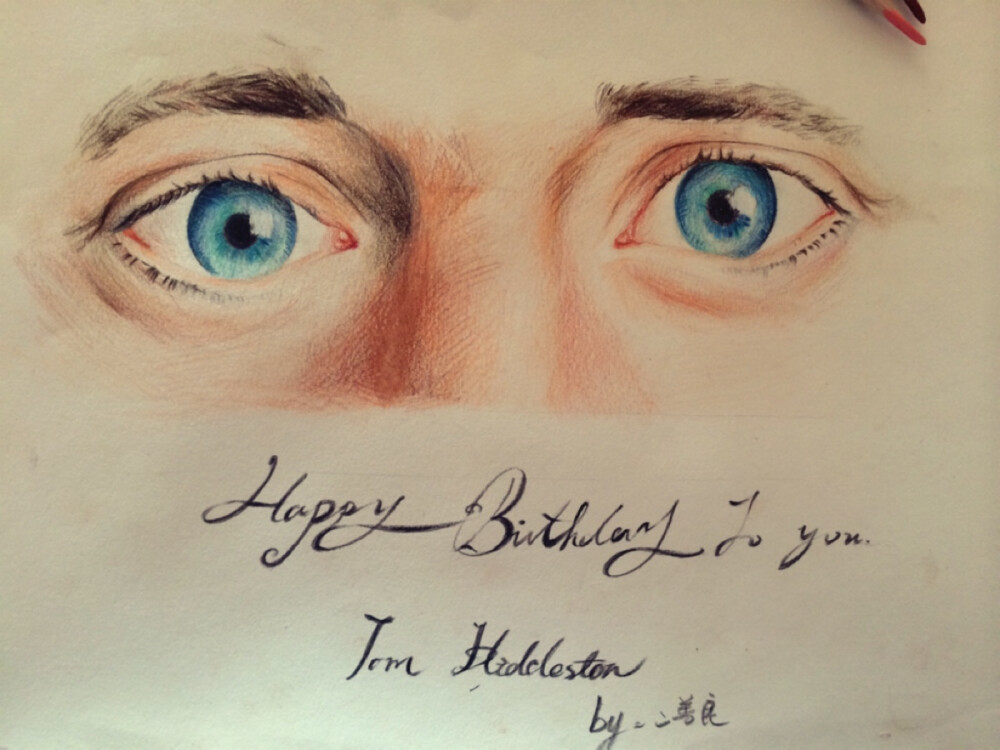 Happy Birthday To you.
Tom Hiddleston
by. 二善良